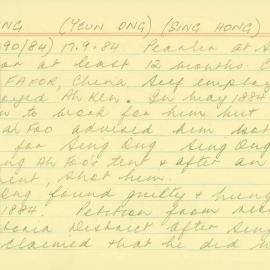 NG (YEUN ONG) (SING HONG)
90/84) 17.9.84. Pearler at S
or at least 12 months. C
FAFOR, China. Self employ
oyed Ah Ken. In May 1884
n to work for him but
ah Foo advised him not
for Sing Ong. Sing Ong
ng Ah Foo's tent & after an
ent, shot him.
Ong found guilty & hung
1884. Petition from resi
toria District after Sing
claimed that he did n